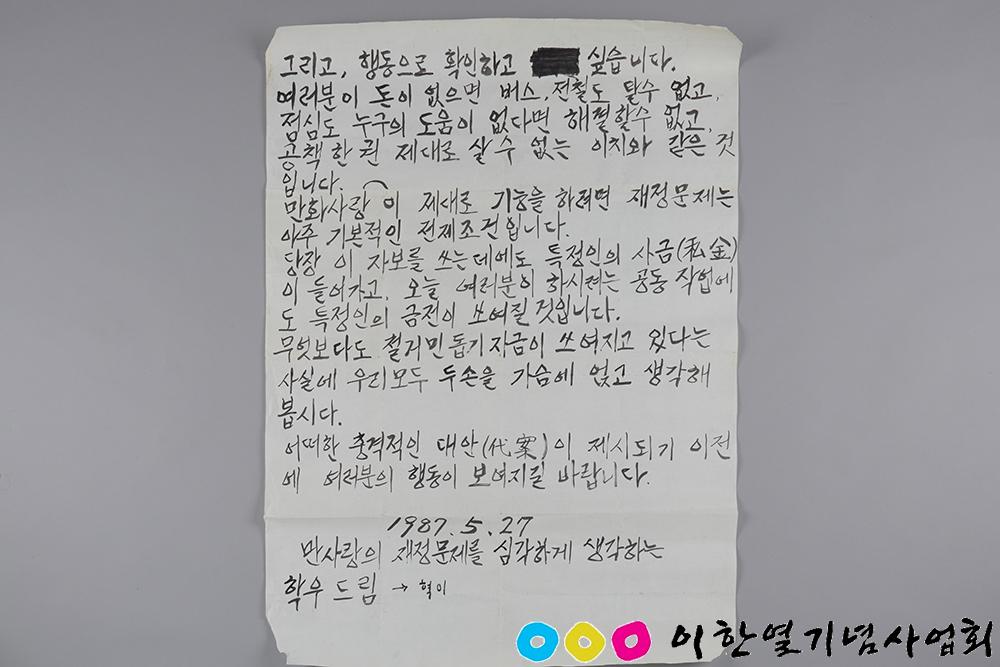 그리고, 행동으로 확인하고 싶습니다.
여러분이 돈이 없으면 버스, 전철도 탈수 없고,
점심도 누구의 도움이 없다면 해결할수 없고,
공책 한권 제대로 살수 없는 이치와 같은 것
입니다.
만화사랑이 제대로 기능을 하려면 재정문제는
아주 기본적인 전제조건입니다.
당장 이 자보를 쓰는데에도 특정인의 사금(私金)
이 들어가고, 오늘 여러분이 하시려는 공동 작업에
도 특정인의 금전이 쓰여질 것입니다.
무엇보다도 철거민 돕기 자금이 쓰여지고 있다는
사실에 우리모두 두손을 가슴에 얹고 생각해
봅시다.
어떠한 충격적인 대안(代案)이 제시되기 이전
에 여러분의 행동이 보여지길 바랍니다.
1987. 5. 27
만사랑의 재정문제를 심각하게 생각하는
학우 드림 → 혁이
이한열기념사업회